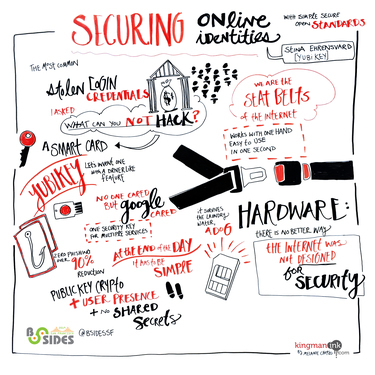 SECURING ONLINE identities
WITH SIMPLE SECURE
OPEN STANDARDS
STINA EHRENSVARD
[YUBIKEY]
THE MOST COMMON
STOLEN LOGIN
CREDENTIALS
I ASKED
WHAT CAN YOU NOT HACK?
A SMART CARD
WE ARE THE
SEAT BELTS
OF THE INTERNET
WORKS WITH ONE HAND
EASY TO USE
IN ONE SECOND
YUBIKEY
LETS INVENT ONE
WITH A DRIVERLESS
FEATURE
NO ONE CARED
BUT google
CARED
ONE SECURITY KEY
FOR MULTIPLE SERVICES
IT SURVIVES
THE LAUNDRY,
WATER,
A DOG
HARDWARE:
THERE IS NO BETTER WAY
THE INTERNET WAS
NOT DESIGNED
for SECURITY
ZERO PHISHING
OVER 90%
REDUCTION
AT THE END of THE DAY
IT HAS TO BE
SIMPLE
PUBLIC KEY CRYPTO
+ USER PRESENCE
+ NO SHARED
Secrets
BSIDES
SF
@BSIDESSF
kingmanink